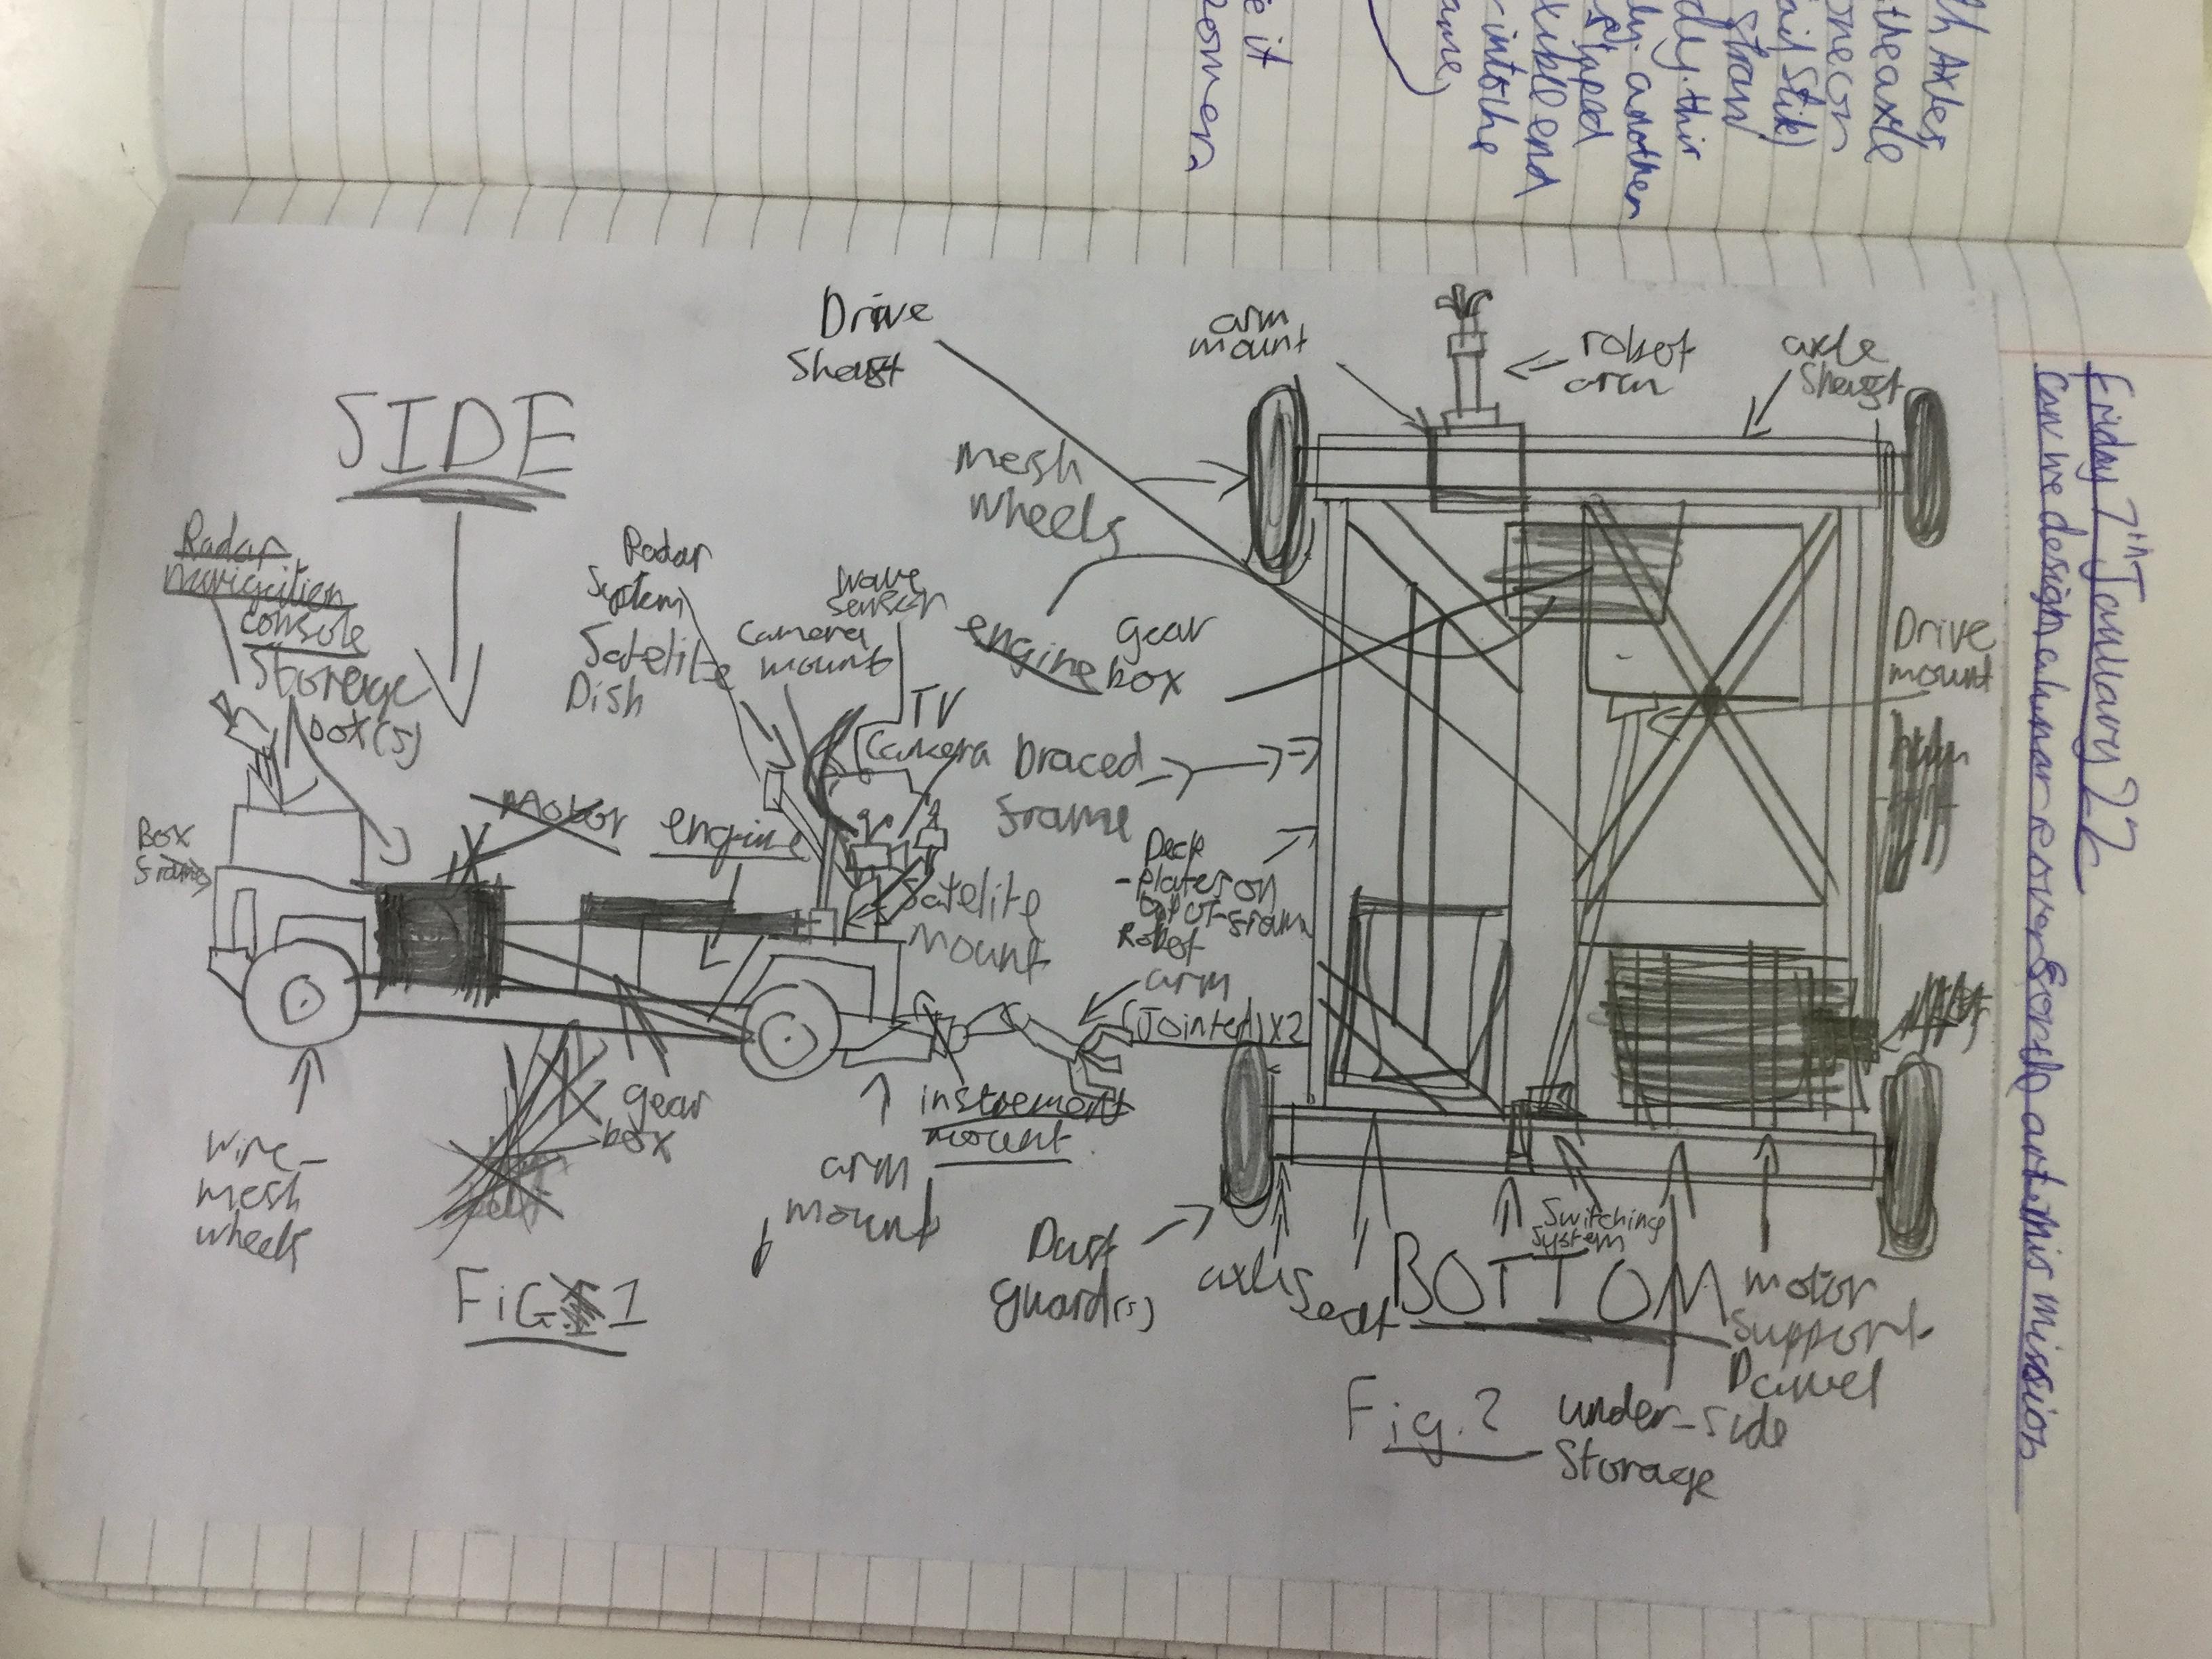 Friday 7th January 22
Can we design a lunar rover for the artimis mission
th Axles
the axle
one con
ail stik)
straw
dly. this
ly. another
s typed
exible end
r into the
ame,
e it
SIDE
Radar
navigition
console
Storege
box(s)
Radar
System
Satelite
Dish
Camera
mount
wave
sensor
TV
Camera
Box
frame
Motor
engine
Satelite
mount
Robot
arm
(Jointed) x2
instrement
mount
arm
mount
gear
box
wire-
mesh
wheels
FiG 1
Drive
Shaft
arm
mount
robot
arm
axle
Shaft
Mesh
wheels
engine
gear
box
Drive
mount
braced
frame
Deck
-plates on
top of fram
Dust
guard(s)
axlis
Seat
Switching
System
BOTTOM
motor
Support
Pannel
under-side
Storage
Fig. 2